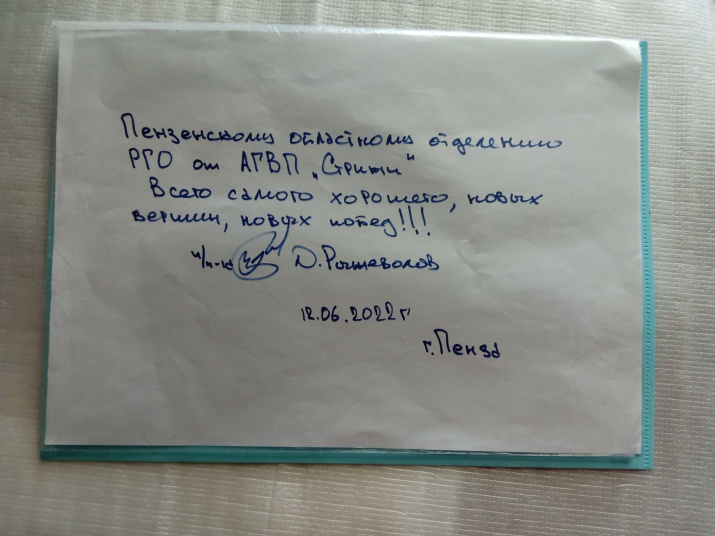 Пензенскому областному отделению
РГО от АГВП „Стрижи"
Всего самого хорошего, новых
вершин, новых побед!!!
п/п-к Д. Рыжеволов
12.06.2022г
г. Пенза